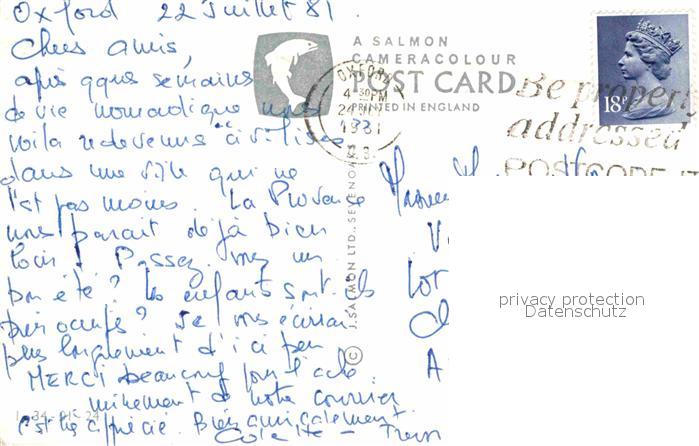 Oxford 22 Juillet 81.
Chers amis,
après qques semaines
de vie nomadique nous
voilà redevenus "civilisés"
dans une ville qui ne
l'est pas moins. La Provence
nous paraît déjà bien
loin! Passez vous un
bon été? Les enfants sont-ils
très occupés? Je vous écrirai
plus longuement d'ici peu
MERCI beaucoup pour l'ache
minement de notre courrier
c'est très apprécié. Bien amicalement.
Colette -
A SALMON
CAMERACOLOUR
POST CARD
PRINTED IN ENGLAND
© J. SALMON LTD., SEVENOAKS
OXFORD
4 30 PM
1981
Be properly
addressed
POSTCODE IT
18P
privacy protection
Datenschutz